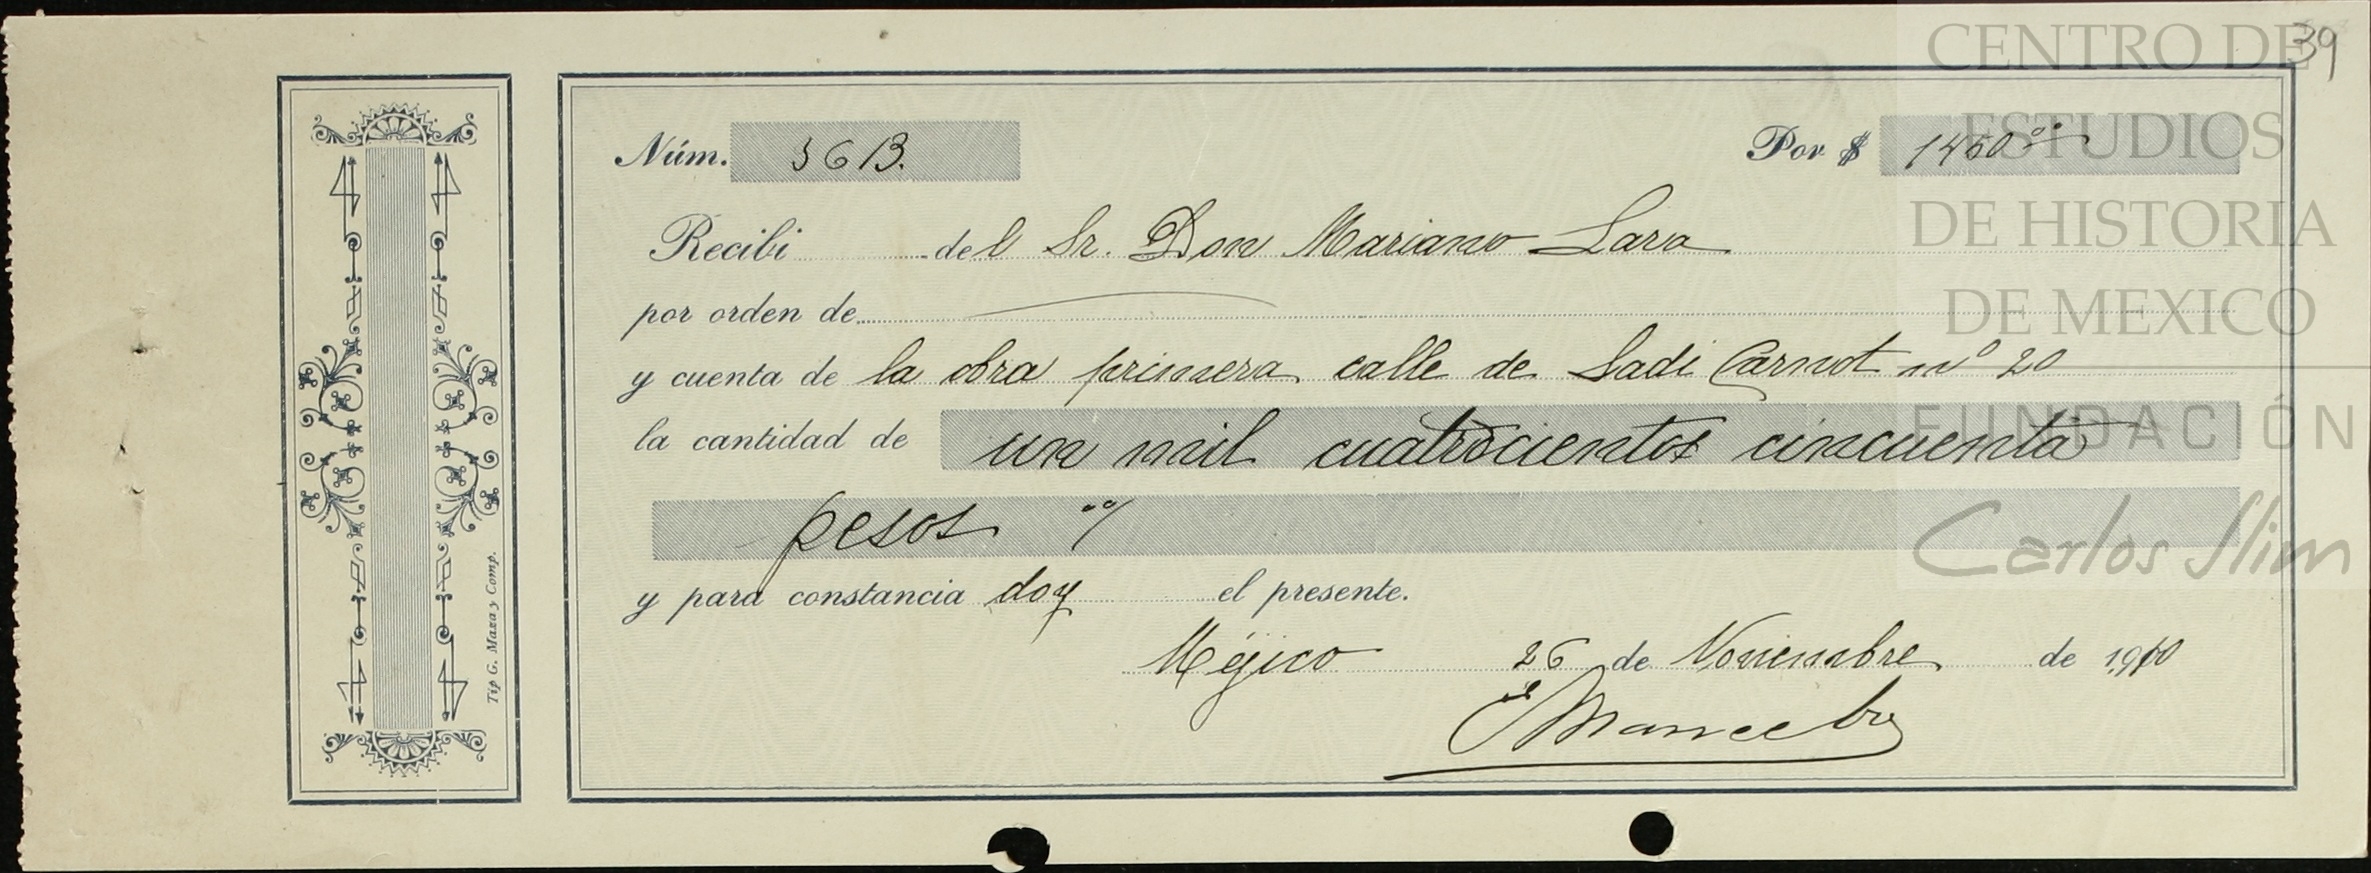 39
Núm. 3613. Por $ 1450 00
Recibi del Sr. Don Mariano Lara
por orden de
y cuenta de la obra primera calle de Sadi Carnot nº 20
la cantidad de un mil cuatrocientos cincuenta
pesos 00/
y para constancia doy el presente.
Méjico 26 de Noviembre de 1910
Tip G. Maza y Comp.
CENTRO DE
ESTUDIOS
DE HISTORIA
DE MEXICO
FUNDACIÓN
Carlos Slim